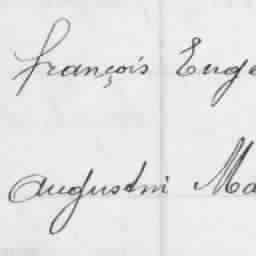 françois Euge
Augustin Ma